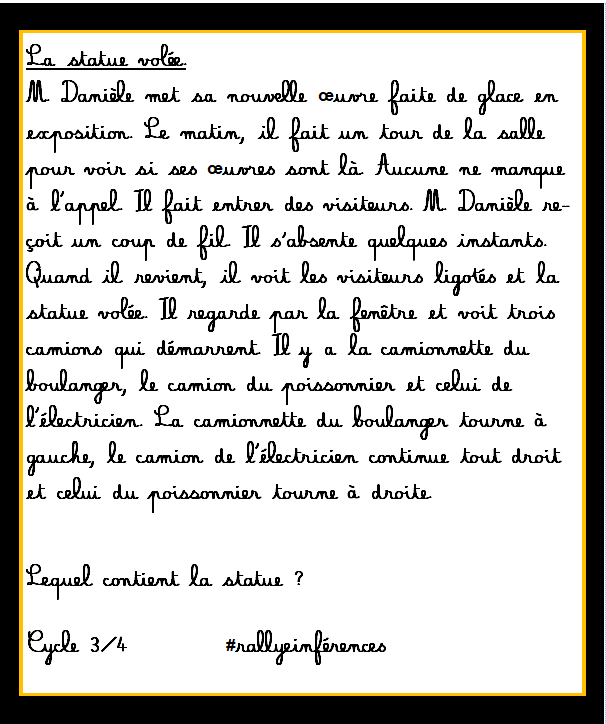 La statue volée.
M. Danièle met sa nouvelle œuvre faite de glace en
exposition. Le matin, il fait un tour de la salle
pour voir si ses œuvres sont là. Aucune ne manque
à l'appel. Il fait entrer des visiteurs. M. Danièle re-
çoit un coup de fil. Il s'absente quelques instants.
Quand il revient, il voit les visiteurs ligotés et la
statue volée. Il regarde par la fenêtre et voit trois
camions qui démarrent. Il y a la camionnette du
boulanger, le camion du poissonnier et celui de
l'électricien. La camionnette du boulanger tourne à
gauche, le camion de l'électricien continue tout droit
et celui du poissonnier tourne à droite.
Lequel contient la statue ?
Cycle 3/4 #rallyeinférences